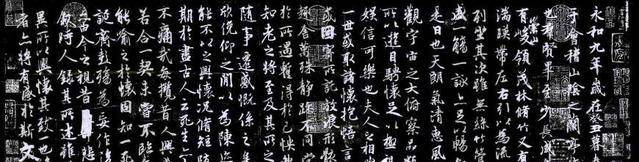 永和九年歲在癸丑暮
于會稽山陰之蘭亭
也羣賢畢至少長咸
有崇山峻領茂林脩竹又有
湍暎帶左右引以為流
列坐其次雖無絲竹
盛一觴一詠亦足以暢
是日也天朗氣清惠風
觀宇宙之大俯察品類
所以遊目騁懷足以極
娛信可樂也夫人之相與
一世或取諸懷抱悟言
或因寄所託放浪形骸
趣舍萬殊靜躁不同當
於所遇蹔得於己怏然
知老之將至及其所之
隨事遷感慨係之矣
欣俛仰之閒以為陳迹
能不以之興懷況脩短隨
期於盡古人云死生亦
不痛哉每攬昔人興感
若合一契未嘗不臨文
能喻之於懷固知一死
誕齊彭殤為妄作後
由今之視昔悲
敘時人錄其所述雖
異所以興懷其致一也
者亦將有感於斯文